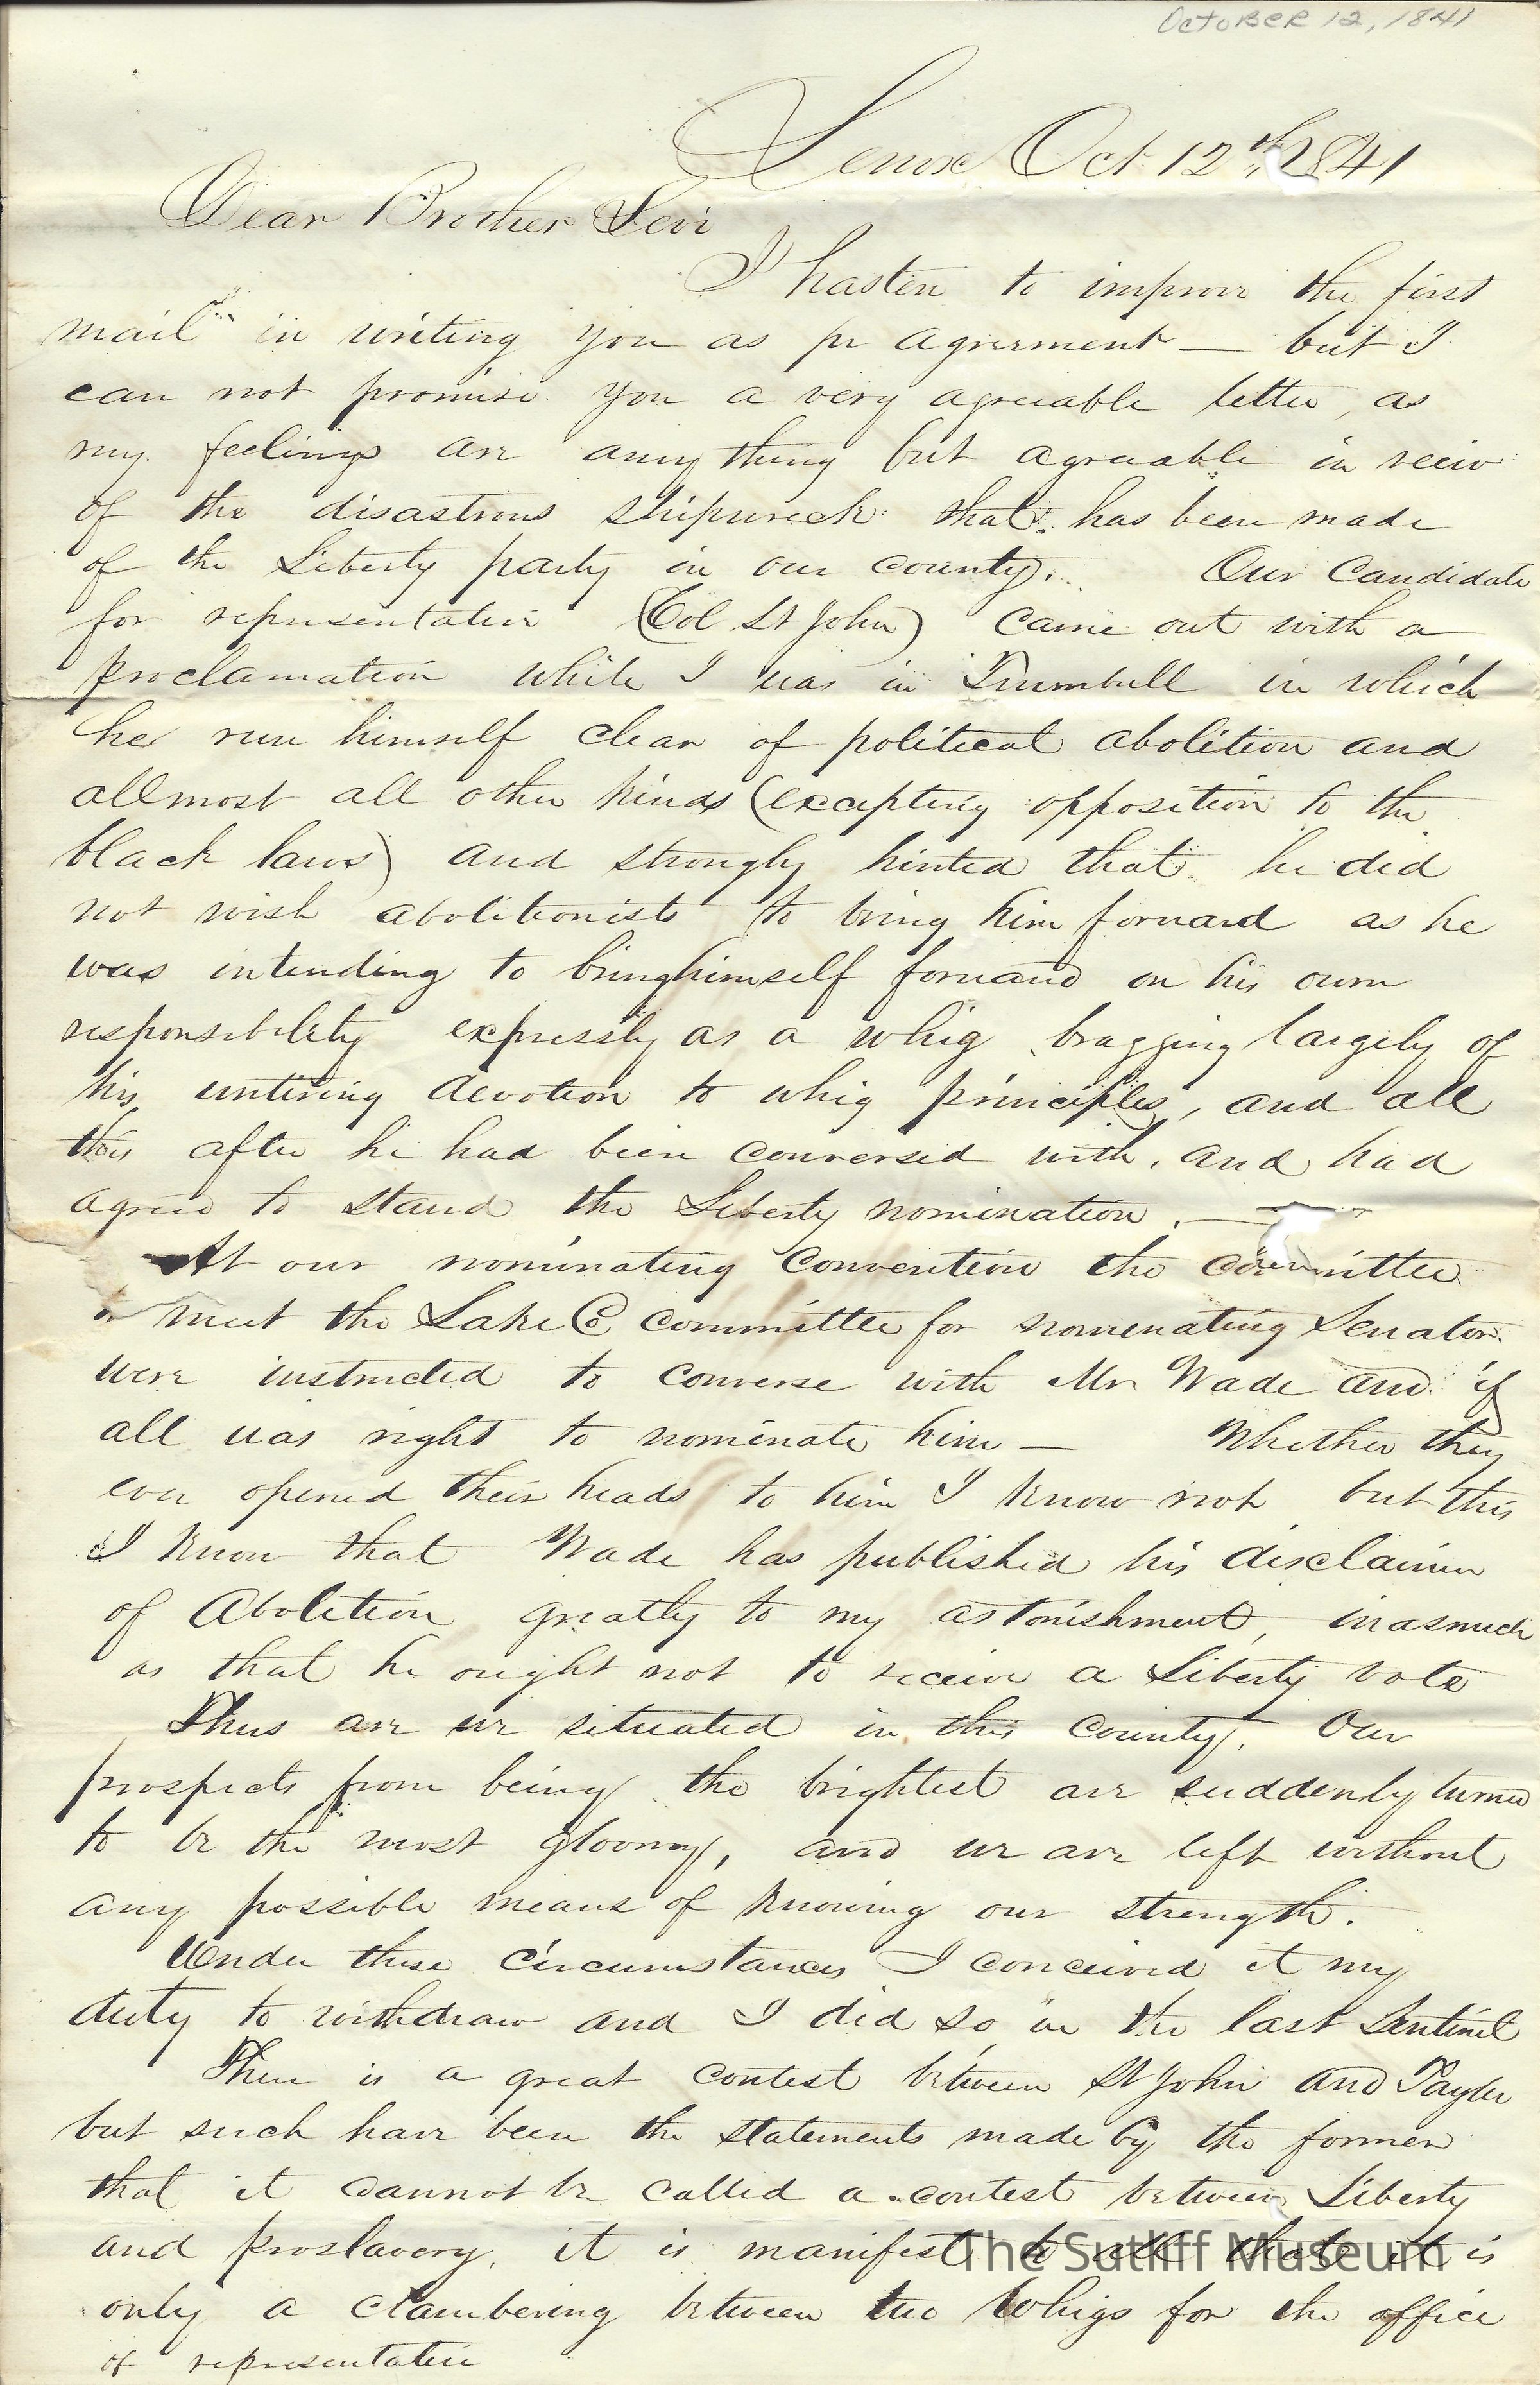 October 12, 1841
Lenox Oct 12th, 1841
Dear Brother Levi
I hasten to improve the first
mail in writing you as pr agreement — but I
can not promise you a very agreeable letter, as
my feelings are any thing but agreeable in veiw
of the disastrous shipwreck that has been made
of the Liberty party in our county. Our Candidate
for representative (Col St John) came out with a
proclamation while I was in Trumbull in which
he run himself clear of political abolition and
allmost all other kinds (excepting opposition to the
black laws) and strongly hinted that he did
not wish abolitionists to bring him forward as he
was intending to bring himself forward on his own
responsibility expressly as a whig bragging largely of
his untiring devotion to whig principles, and all
this after he had been conversed with, and had
agreed to stand the Liberty nomination. —
At our nominating Convention the committee
to meet the Lake Co committee for nomenating Senator
were instructed to converse with Mr Wade and if
all was right to nominate him — Whether they
ever opened their heads to him I know not but this
I know that Wade has published his disclaimer
of Abolition greatly to my astonishment, inasmuch
as that he ought not to receive a Liberty vote
Thus are we situated in this County. Our
prospects from being the brightest are suddenly turned
to be the most gloomy, and we are left without
any possible means of knowing our strength.
Under these circumstances I conceived it my
duty to withdraw and I did so in the last Sentinel
There is a great contest between St John and Taylor
but such have been the statements made by the former
that it cannot be called a contest between Liberty
and proslavery, it is manifest to all that it is
The Sutliff Museum
only a clambering between two Whigs for the office
of representative